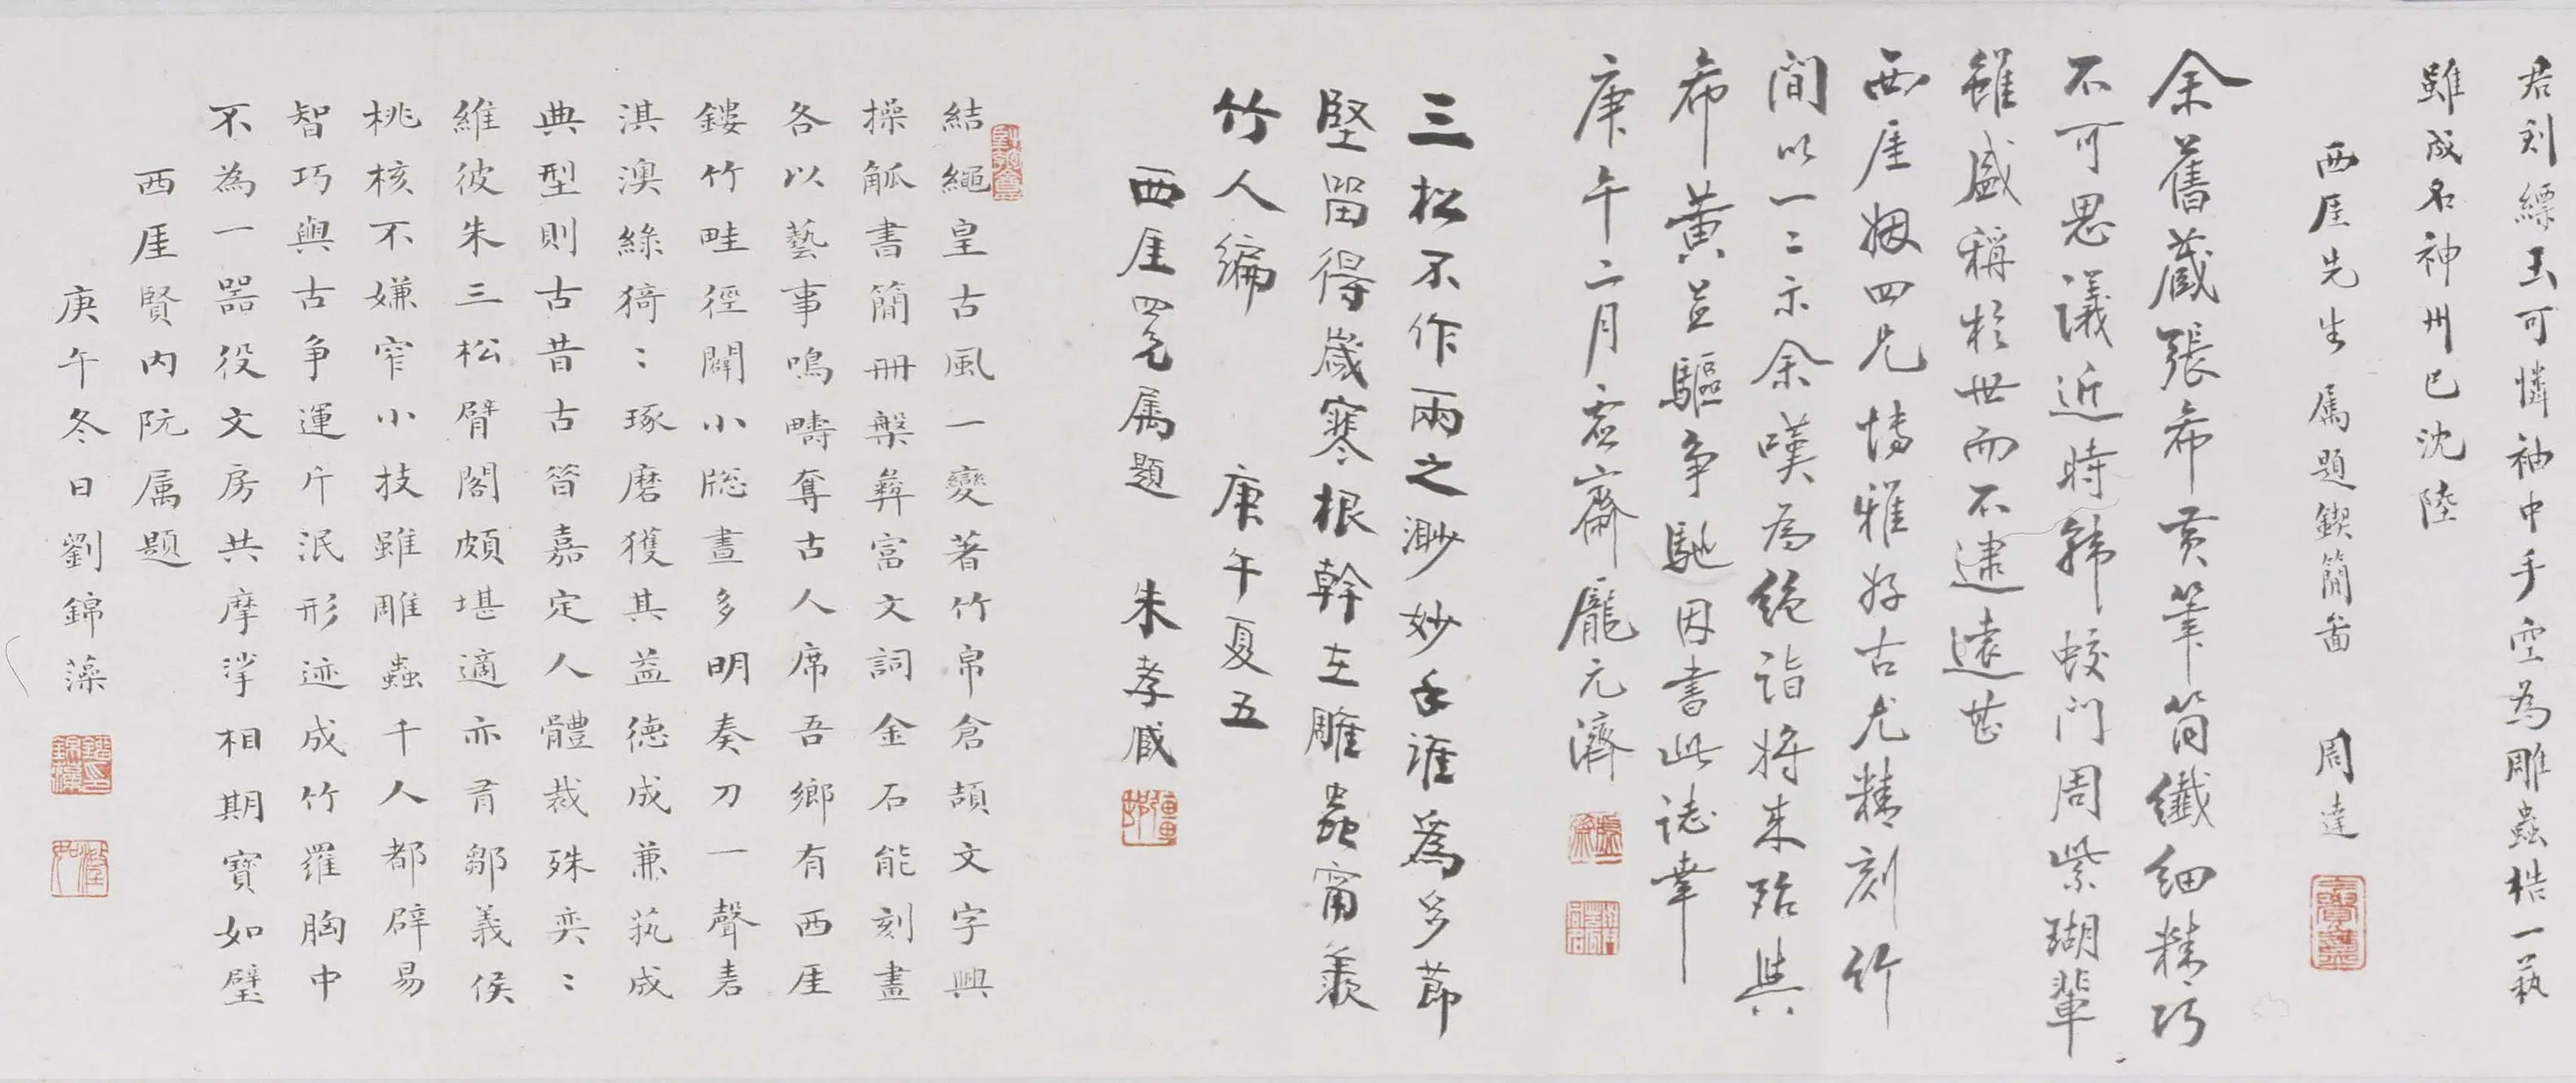 君刻縹玉可憐袖中手空為雕蟲梏一藝
雖成名神州已沈陸
西厓先生屬題鍥簡圖 周達
余舊藏張希黃筆筒纖細精巧
不可思議近時韓蛟門周紫瑚輩
雖盛稱於世而不逮遠甚
西厓姻四兄博雅好古尤精刻竹
間以一二示余嘆為絕詣將來殆與
希黃並驅爭馳因書此誌幸
庚午二月虛齋龐元濟
三松不作兩之渺妙手誰爲多節
堅留得歲寒根幹在雕蟲甯羨
竹人編 庚午夏五
西厓四兄屬題 朱孝臧
結繩皇古風一變著竹帛倉頡文字興
操觚書簡冊槃彝富文詞金石能刻畫
各以藝事鳴疇奪古人席吾鄉有西厓
鏤竹畦徑闢小牕晝多明奏刀一聲砉
淇澳綠猗〻琢磨獲其益德成兼藝成
典型則古昔古晳嘉定人體裁殊奕〻
維彼朱三松臂閣頗堪適亦有鄒義侯
桃核不嫌窄小技雖雕蟲千人都辟易
智巧與古爭運斤泯形迹成竹羅胸中
不為一器役文房共摩挲相期寶如璧
西厓賢內阮屬題
庚午冬日劉錦藻